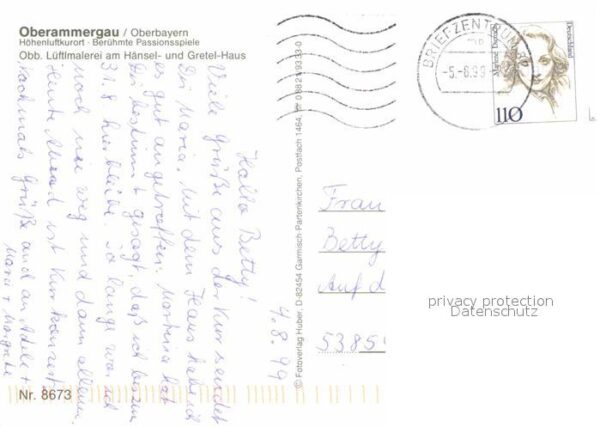 Oberammergau / Oberbayern
Höhenluftkurort · Berühmte Passionsspiele
Obb. Lüftlmalerei am Hänsel- und Gretel-Haus
4.8.99
Hallo Betty!
Viele Grüße aus der Kur sendet
Dir Maria. Mit dem Haus habe ich
es gut angetroffen. Martina hat
Dir bestimmt gesagt, daß ich bis zum
31.8 hierbleibe. So lange war ich
noch nie weg und dann alleine.
Heute Abend ist Kurkonzert
Nochmals Grüße und an Adele +
Maria + Margarete
Nr. 8673
© Fotoverlag Huber, D-82454 Garmisch-Partenkirchen, Postfach 1464, 08821/9333-0
BRIEFZENTRUM 80
-5.-8.99
Marlene Dietrich
Deutschland
110
Frau
Betty
Auf d
53859
privacy protection
Datenschutz